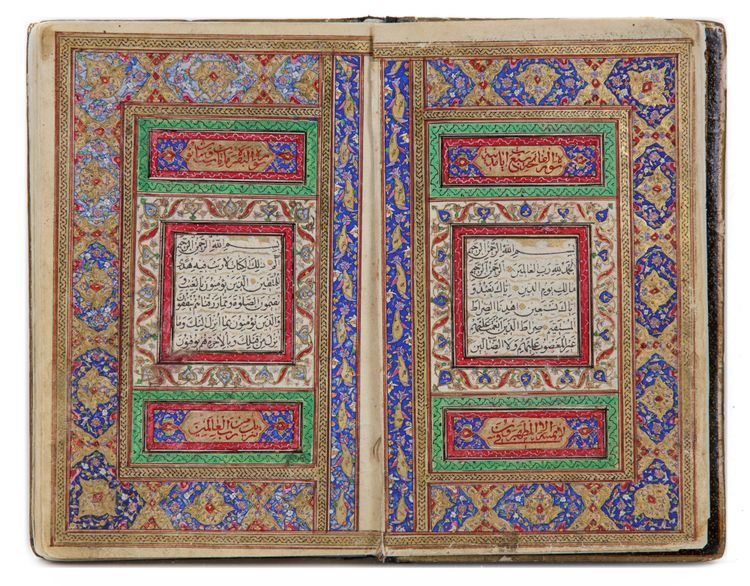 سورة الفاتحة سبع ايات
بسم الله الرحمن الرحيم
الحمد لله رب العالمين الرحمن الرحيم
مالك يوم الدين اياك نعبد و
اياك نستعين اهدنا الصراط
المستقيم صراط الذين انعمت عليهم
غير المغضوب عليهم ولا الضالين
لا يمسه الا المطهرون
سورة البقرة
بسم الله الرحمن الرحيم
الم ذلك الكتاب لا ريب فيه هدى
للمتقين الذين يؤمنون بالغيب و
يقيمون الصلوة ومما رزقناهم ينفقون
والذين يؤمنون بما انزل اليك وما
انزل من قبلك وبالاخرة هم يوقنون
من رب العالمين